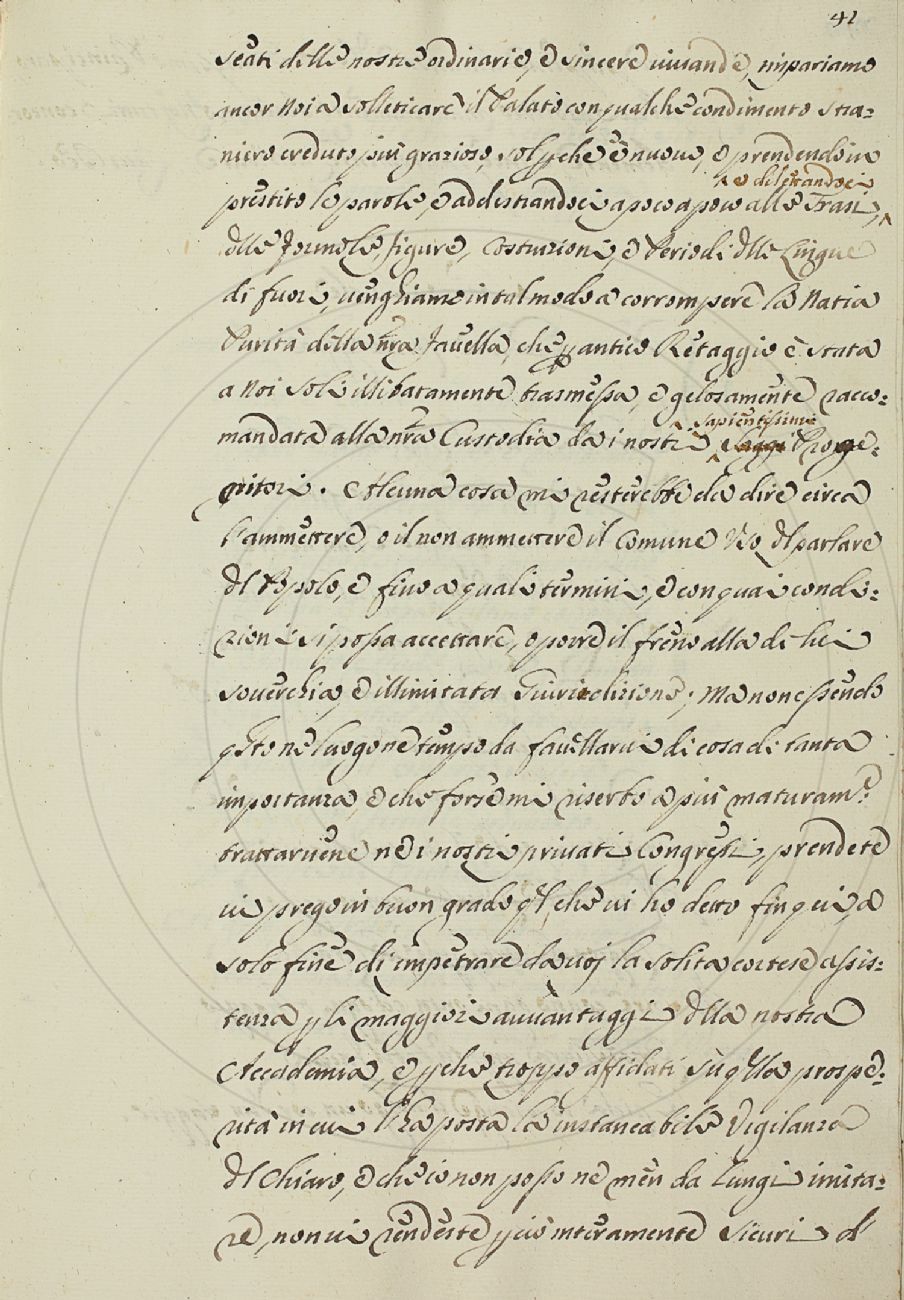 41
seati delle nostre ordinarie, e sincere uiuande, impariamo
ancor Noi a solleticare il Palato con qualche condimento stra=
niero creduto più grazioso, sol p che è nuouo, e prendendo in
e dilettandoci
prestito le parole, e addestrandoci a poco a poco alle Frasi,
dlle Formole, figure, Costruzioni, e Periodi dlle Lingue
di fuori, uenghiamo in tal modo a corrompere la Natia
Purità della nra Fauella, che p antico Retaggio è stata
a Noi soli illibatamente trasmessa, e gelosamente racco=
sapientissimi
mandata alla nra Custodia da i nostri Saggi Proge=
nitori. Alcuna cosa mi resterebbe da dire circa
l'ammettere, o il non ammettere il Comune Uso dl parlare
dl Popolo, e fino a quali termini, e con quai condi=
zioni si possa accettare, o porre il freno alla di lui
souerchia, e illimitata Giuridizione; Ma non essendo
qsto ne luogo ne tempo da fauellarui di cosa di tanta
importanza, e che forse mi riserbo a più maturam.e
trattaruene ne i nostri priuati Congressi, prendete
ui prego in buon grado ql, che ui ho detto fin qui, a
solo fine di impetrare da uoj la solita cortese assis=
tenza p li maggiori auuantaggi dlla nostra
Accademia, e p che troppo affidati sù qlla prospe=
rità in cui l'ha posta la instancabile Vigilanza
dl Chiaro, e che io non posso ne men da lungi imita=
re, non ui rendeste p ciò interamente sicuri d'